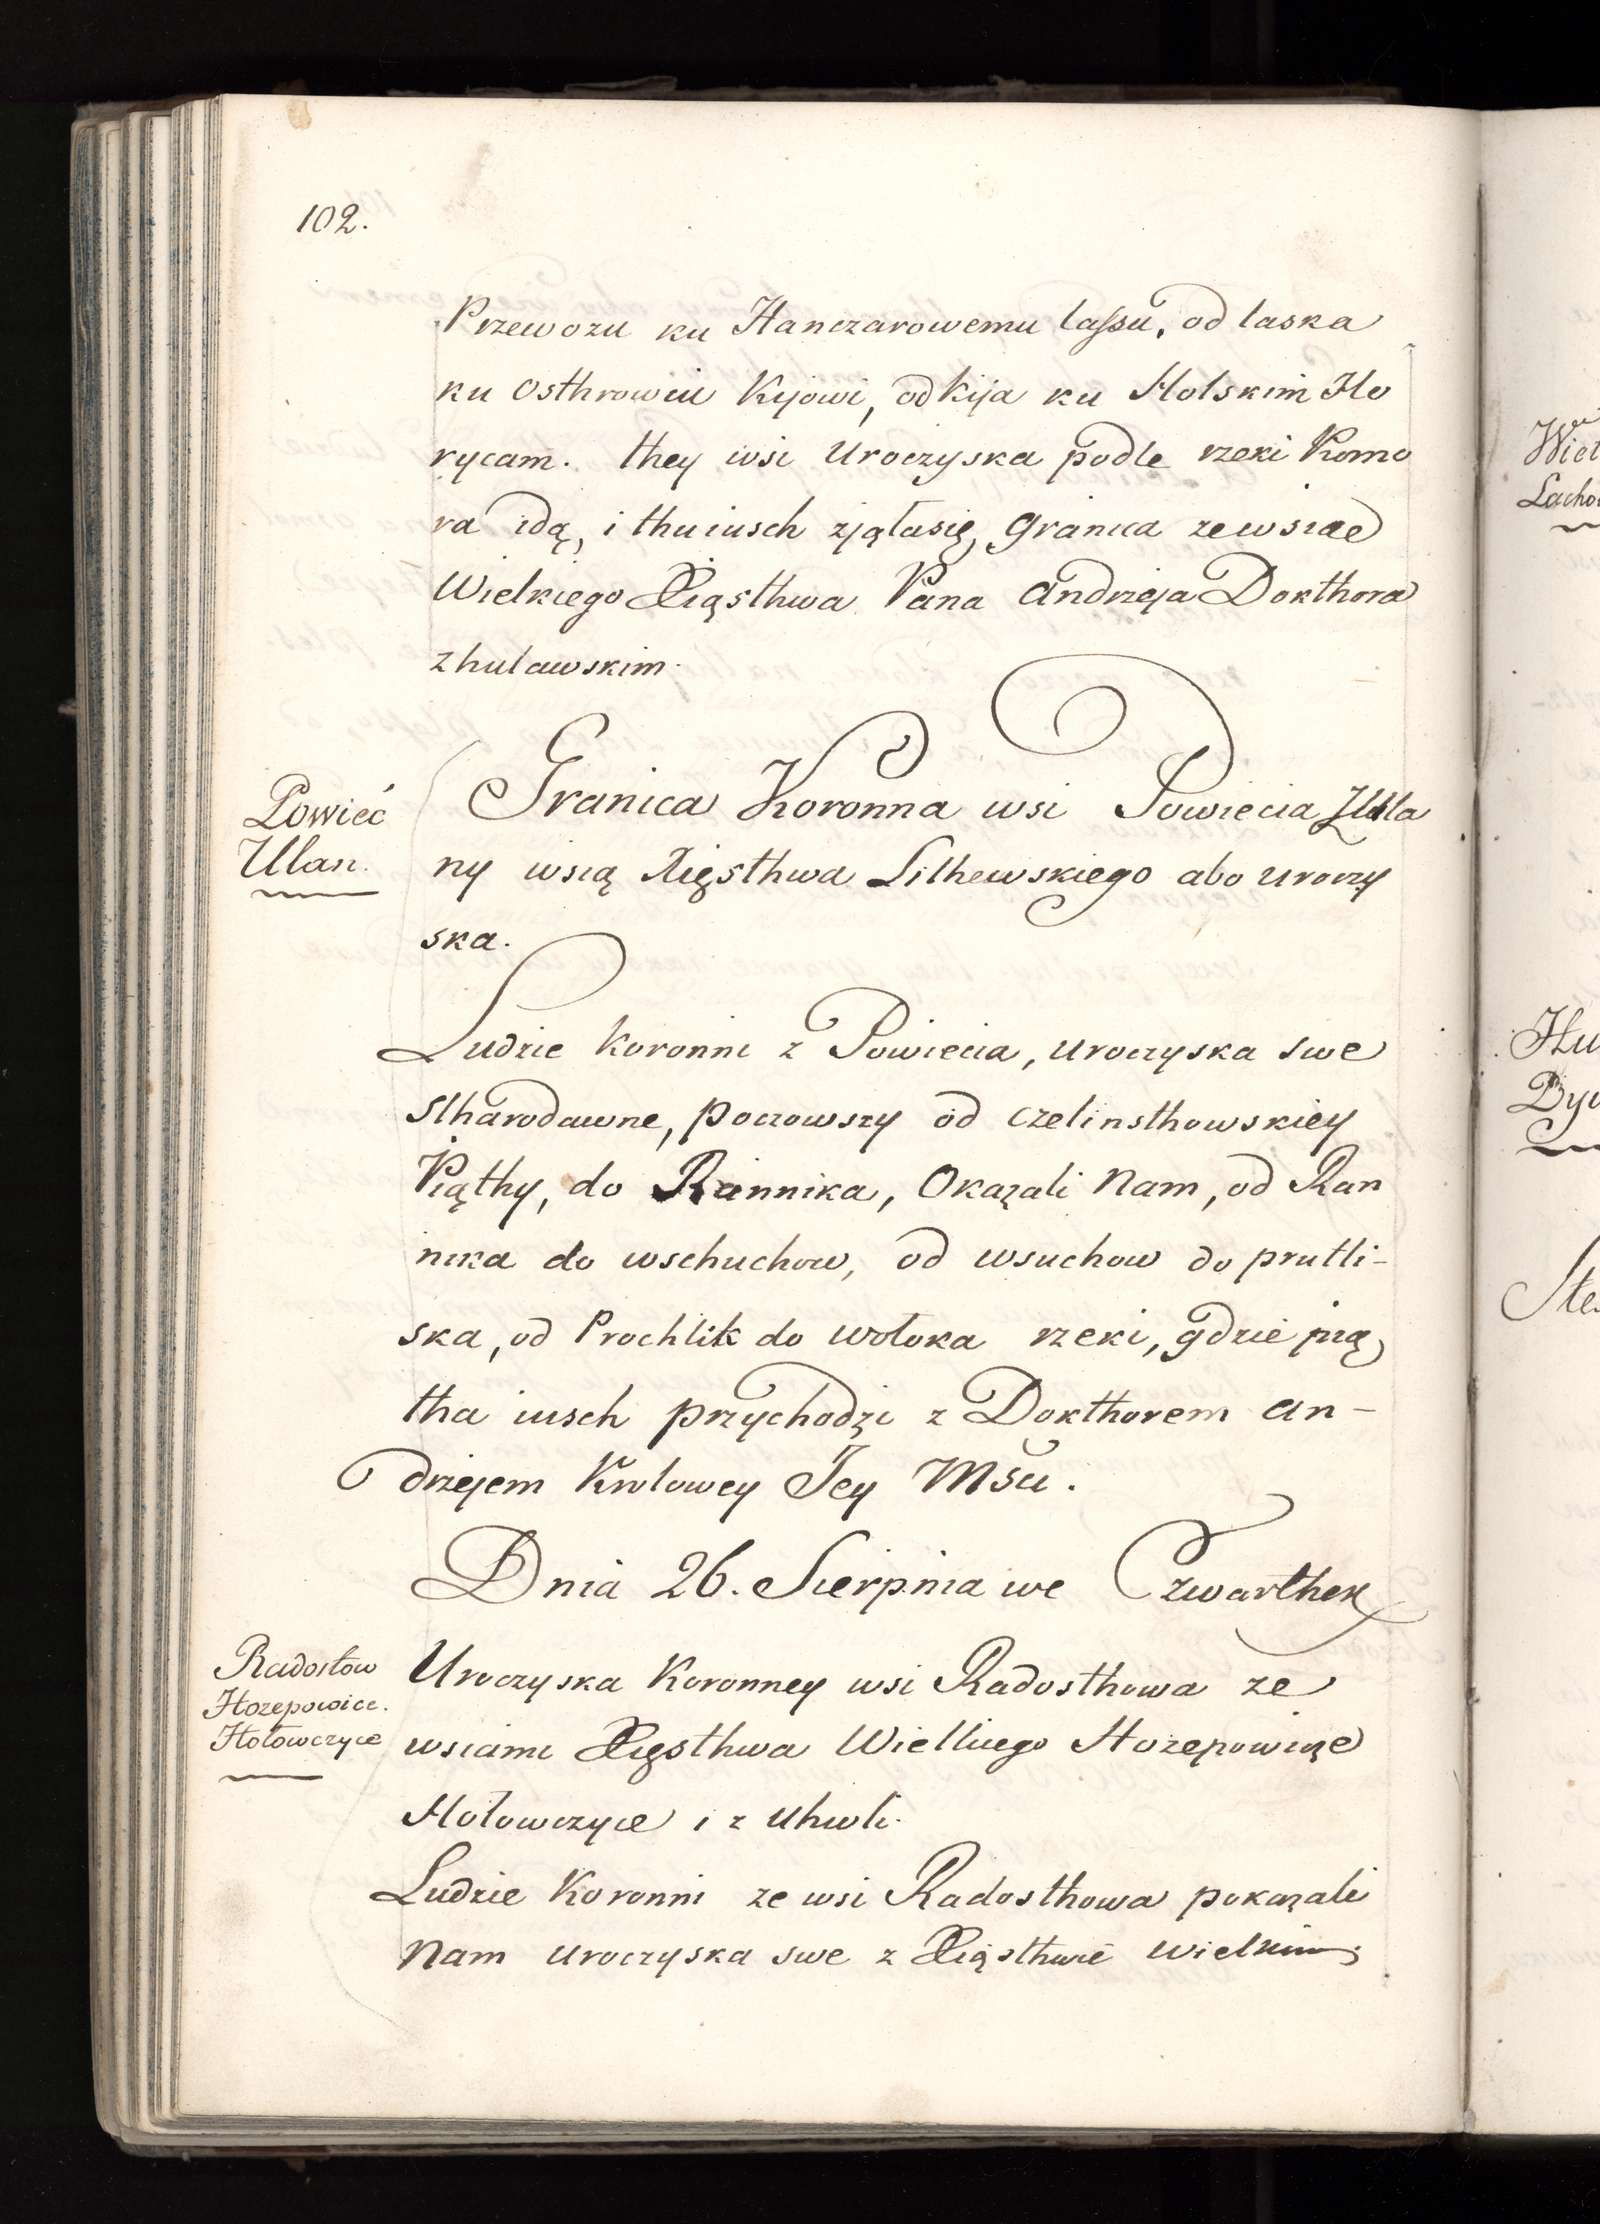 102.
Przewozu ku Hanczarowemu lassu, od laska
ku Osthrowiu Kijowi, od Kija ku Holskim Ho
rycam. they wsi Uroczyska podle rzeki Komo
ra idą, i thu iusch zjąłasię, granica ze wsiae
Wielkiego Xiąsthwa Pana Andrzeja Dokthora
zhulawskim.
Powieć
Ulan.
Granica Koronna wsi Powiecia z Ula
ny wsią Xięsthwa Lithewskiego abo uroczy
ska.
Ludzie koronni z Powiecia, uroczyska swe
stharodawne, poczowszy od Czelinsthowskiey
Piąthy, do Rannika, Okazali Nam, od Ran
nika do wschuchow, od wsuchow do prutli-
ska, od Prochlik do wołoka rzeki, gdzie pią
tha iusch przychodzi z Dokthorem An-
drzejem Krolowey Jey Mści.
Dnia 26. Sierpnia we Czwarthek
Radostow
Hozepowice.
Hołowczyce
Uroczyska Koronney wsi Radosthowa ze
wsiami Xięsthwa Wielkiego Hozepowicze
Hołowczyce i z Uhwli.
Ludzie Koronni ze wsi Radosthowa pokazali
Nam uroczyska swe z Xiąsthwe Wielkim;
Lacho